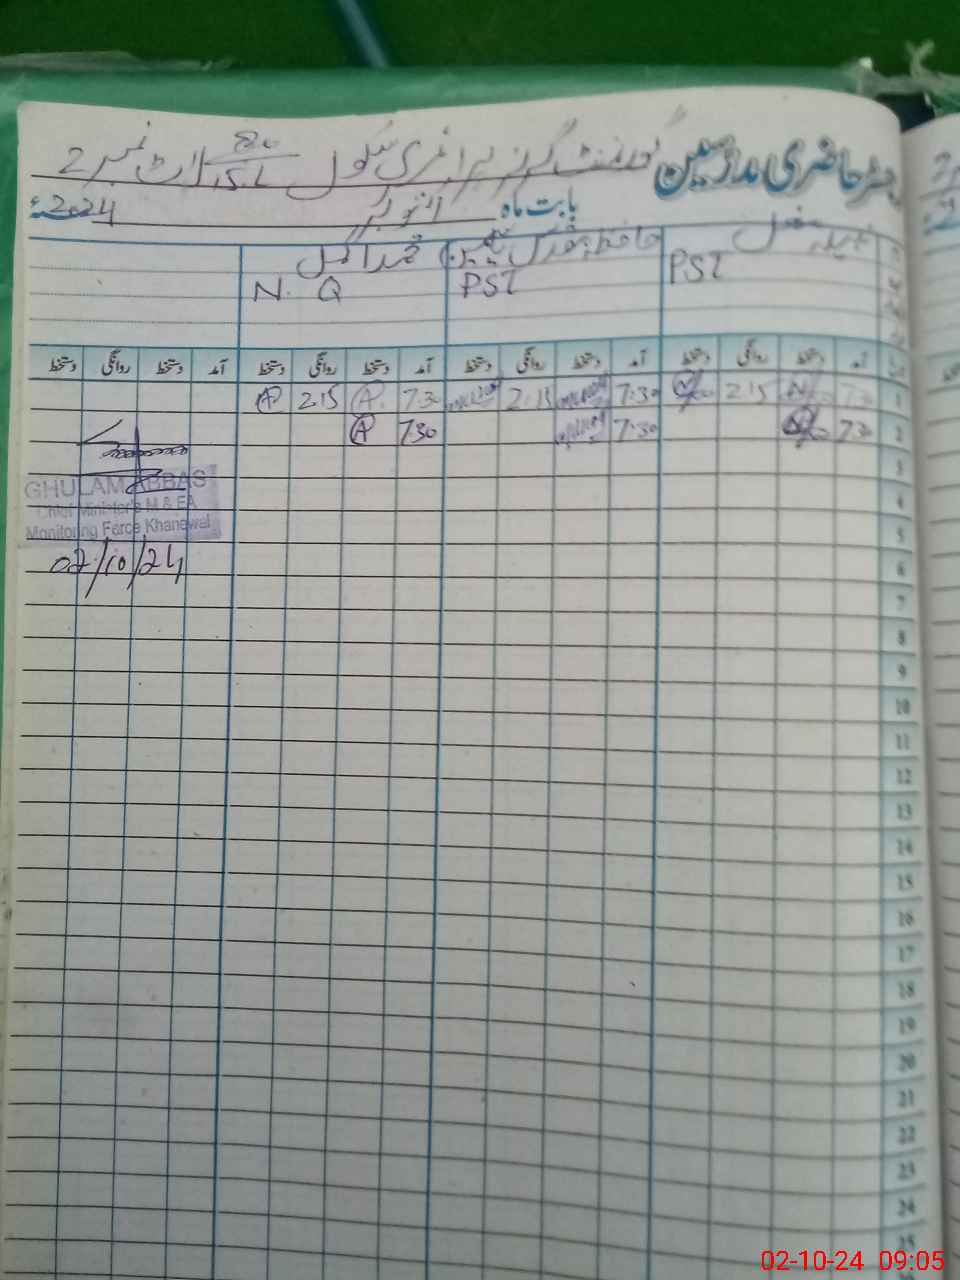 رجسٹر حاضری مدرسین گورنمنٹ گرلز پرائمری سکول 15.L لاٹ نمبر 2
بابت ماہ اکتوبر 2024ء
محمد اکمل
PST PST N. Q
آمد دستخط روانگی دستخط آمد دستخط روانگی دستخط آمد دستخط روانگی دستخط آمد دستخط روانگی دستخط
1 7:30 2:15 7:30 2:15 7:30 A 2:15 A
2 7:30 7:30 7:30 A
3
4
5
6
7
8
9
10
11
12
13
14
15
16
17
18
19
20
21
22
23
24
25
GHULAM ABBAS
Chief Minister's M & EA
Monitoring Force Khanewal
02/10/24
02-10-24 09:05